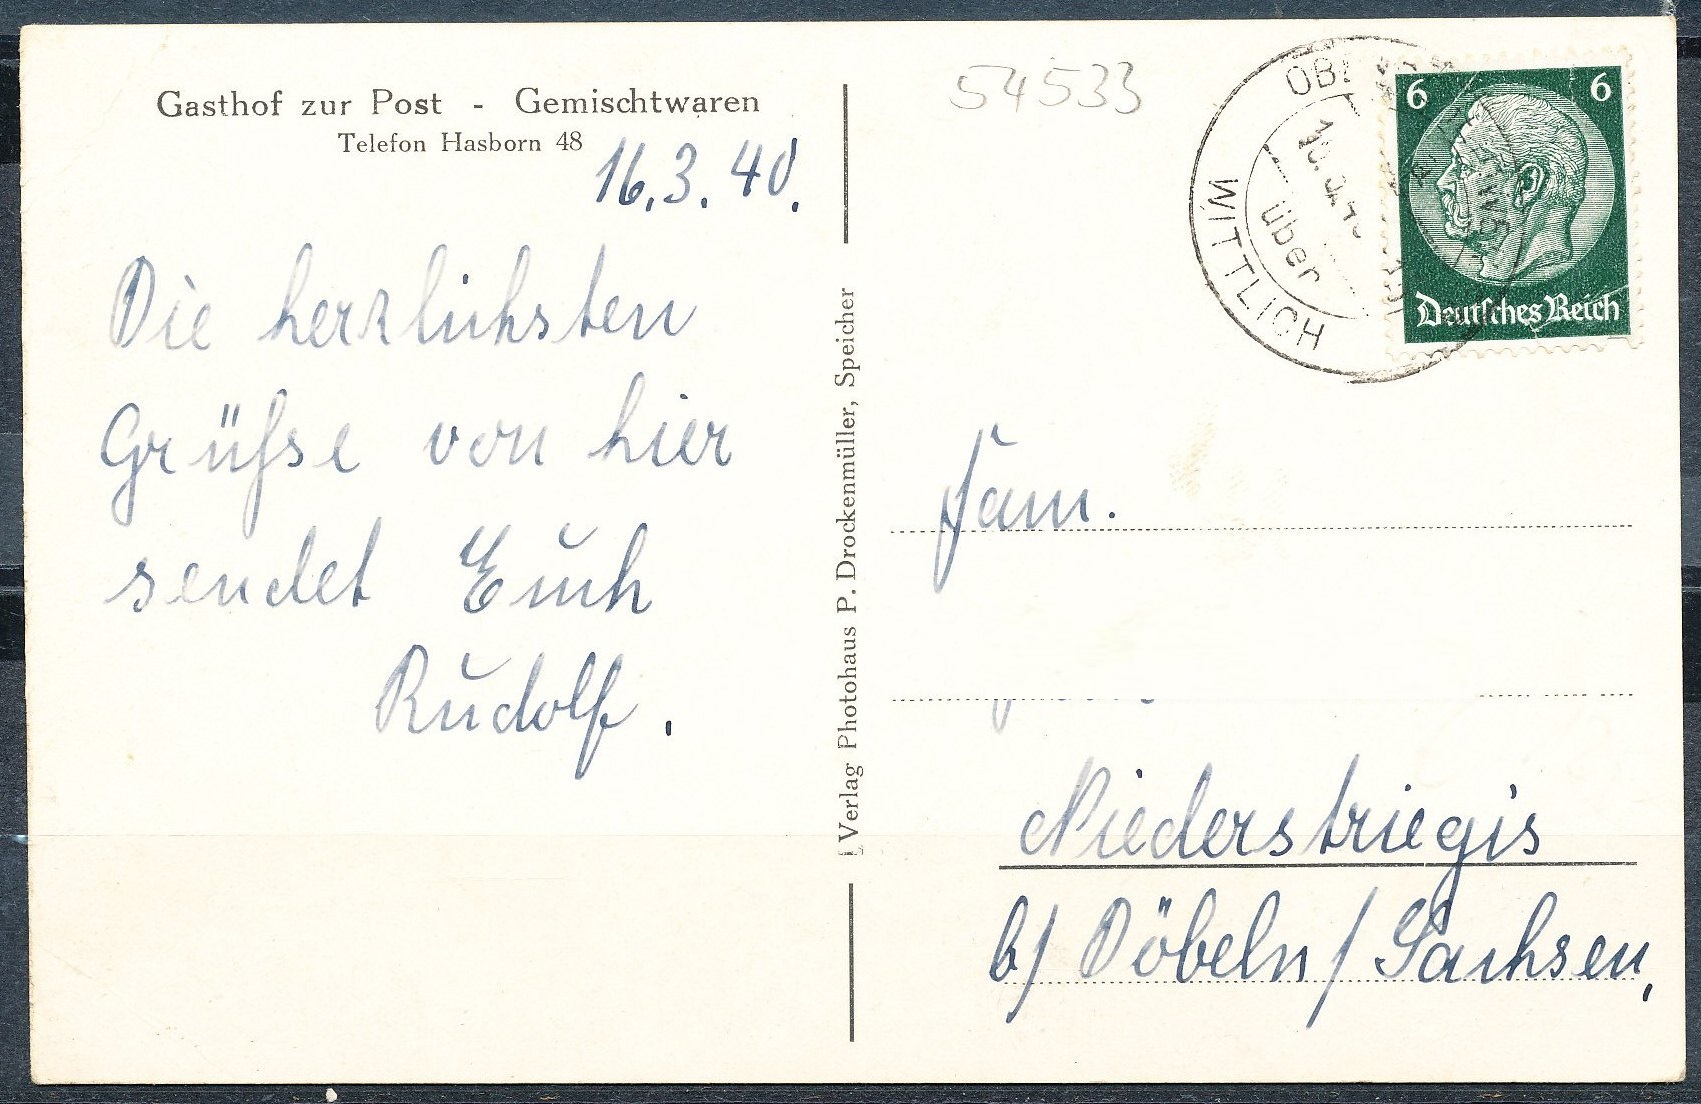 Gasthof zur Post - Gemischtwaren
Telefon Hasborn 48
16.3.40.
Die herzlichsten
Grüsse von hier
sendet Euch
Rudolf.
Verlag Photohaus P. Drockenmüller, Speicher
54533
WITTLICH
über
6 6
Deutsches Reich
Fam.
Niederstriegis
b/ Döbeln / Sachsen,